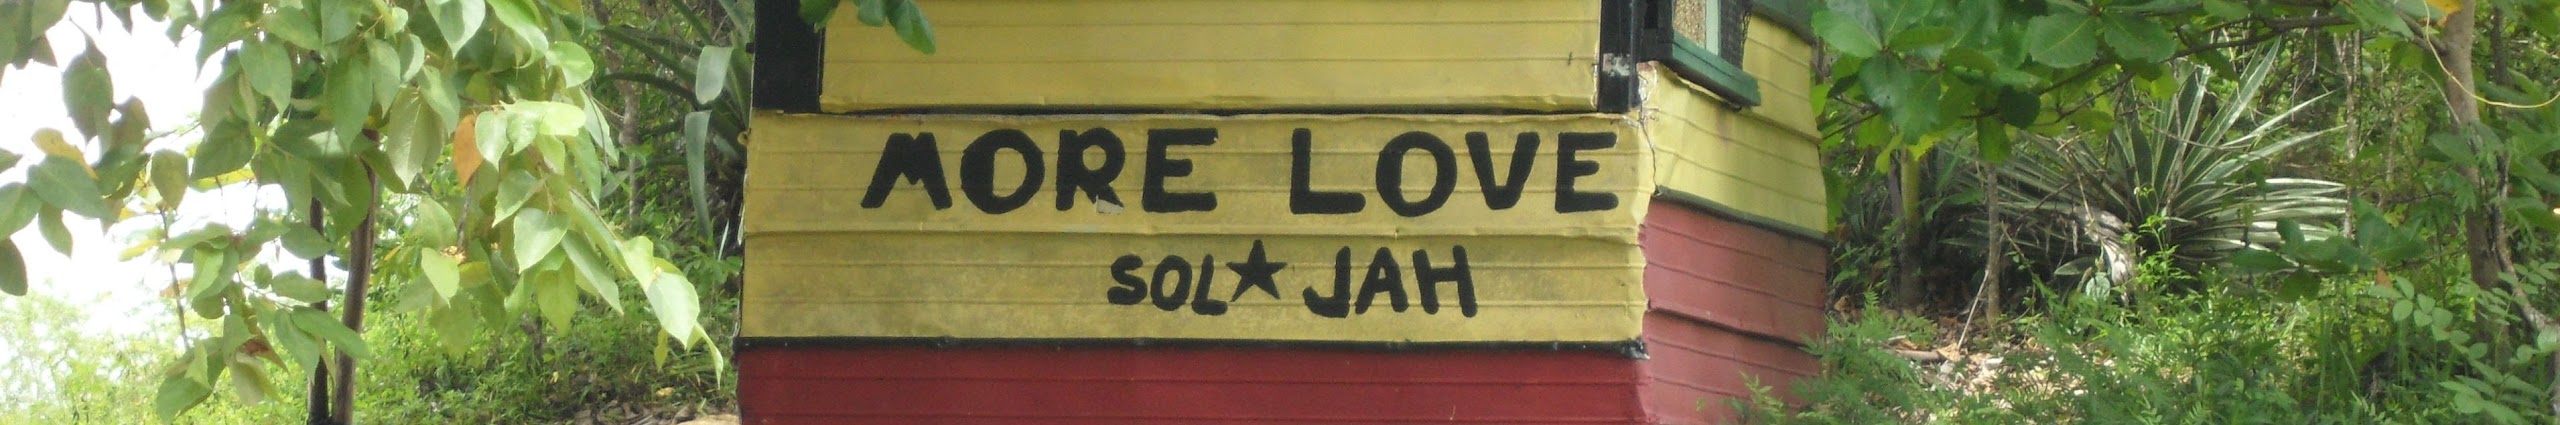 MORE LOVE
SOL★JAH